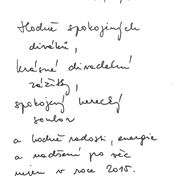 Hodně spokojených
diváků,
krásné divadelní
zážitky,
spokojený herecký
soubor
a hodně radosti, energie
a nadšení pro věc
nejen v roce 2015.